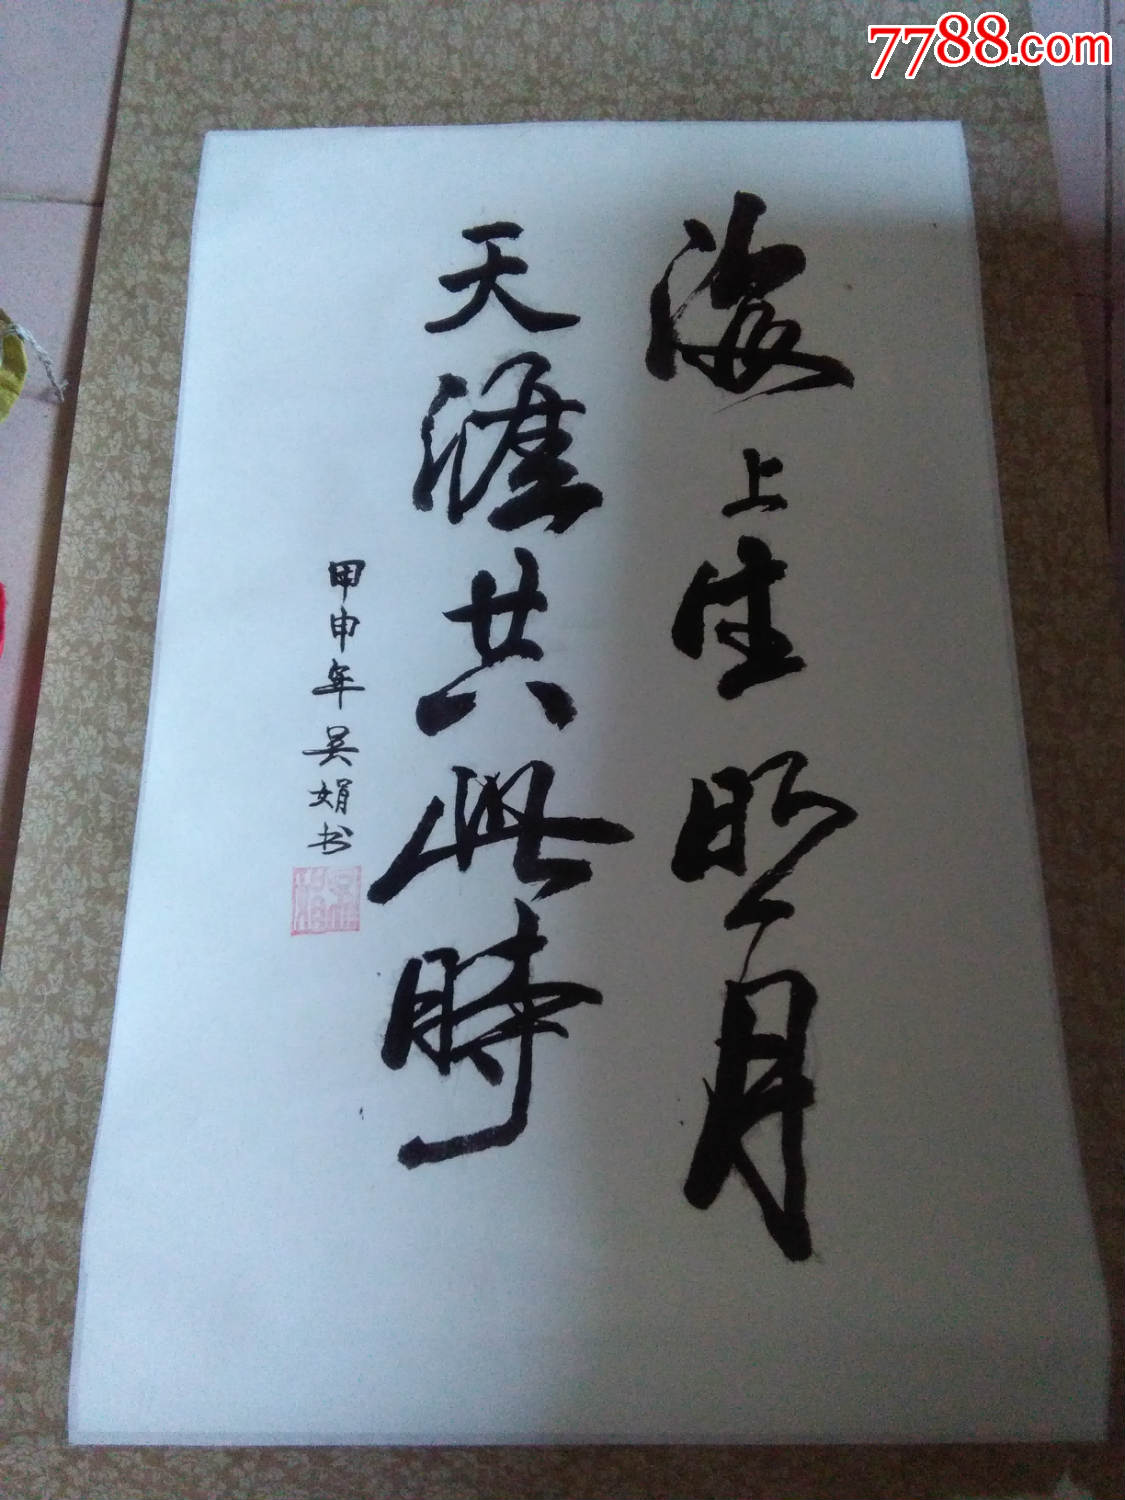 7788.com
海上生明月
天涯共此時
甲申年吴娟书
吴娟